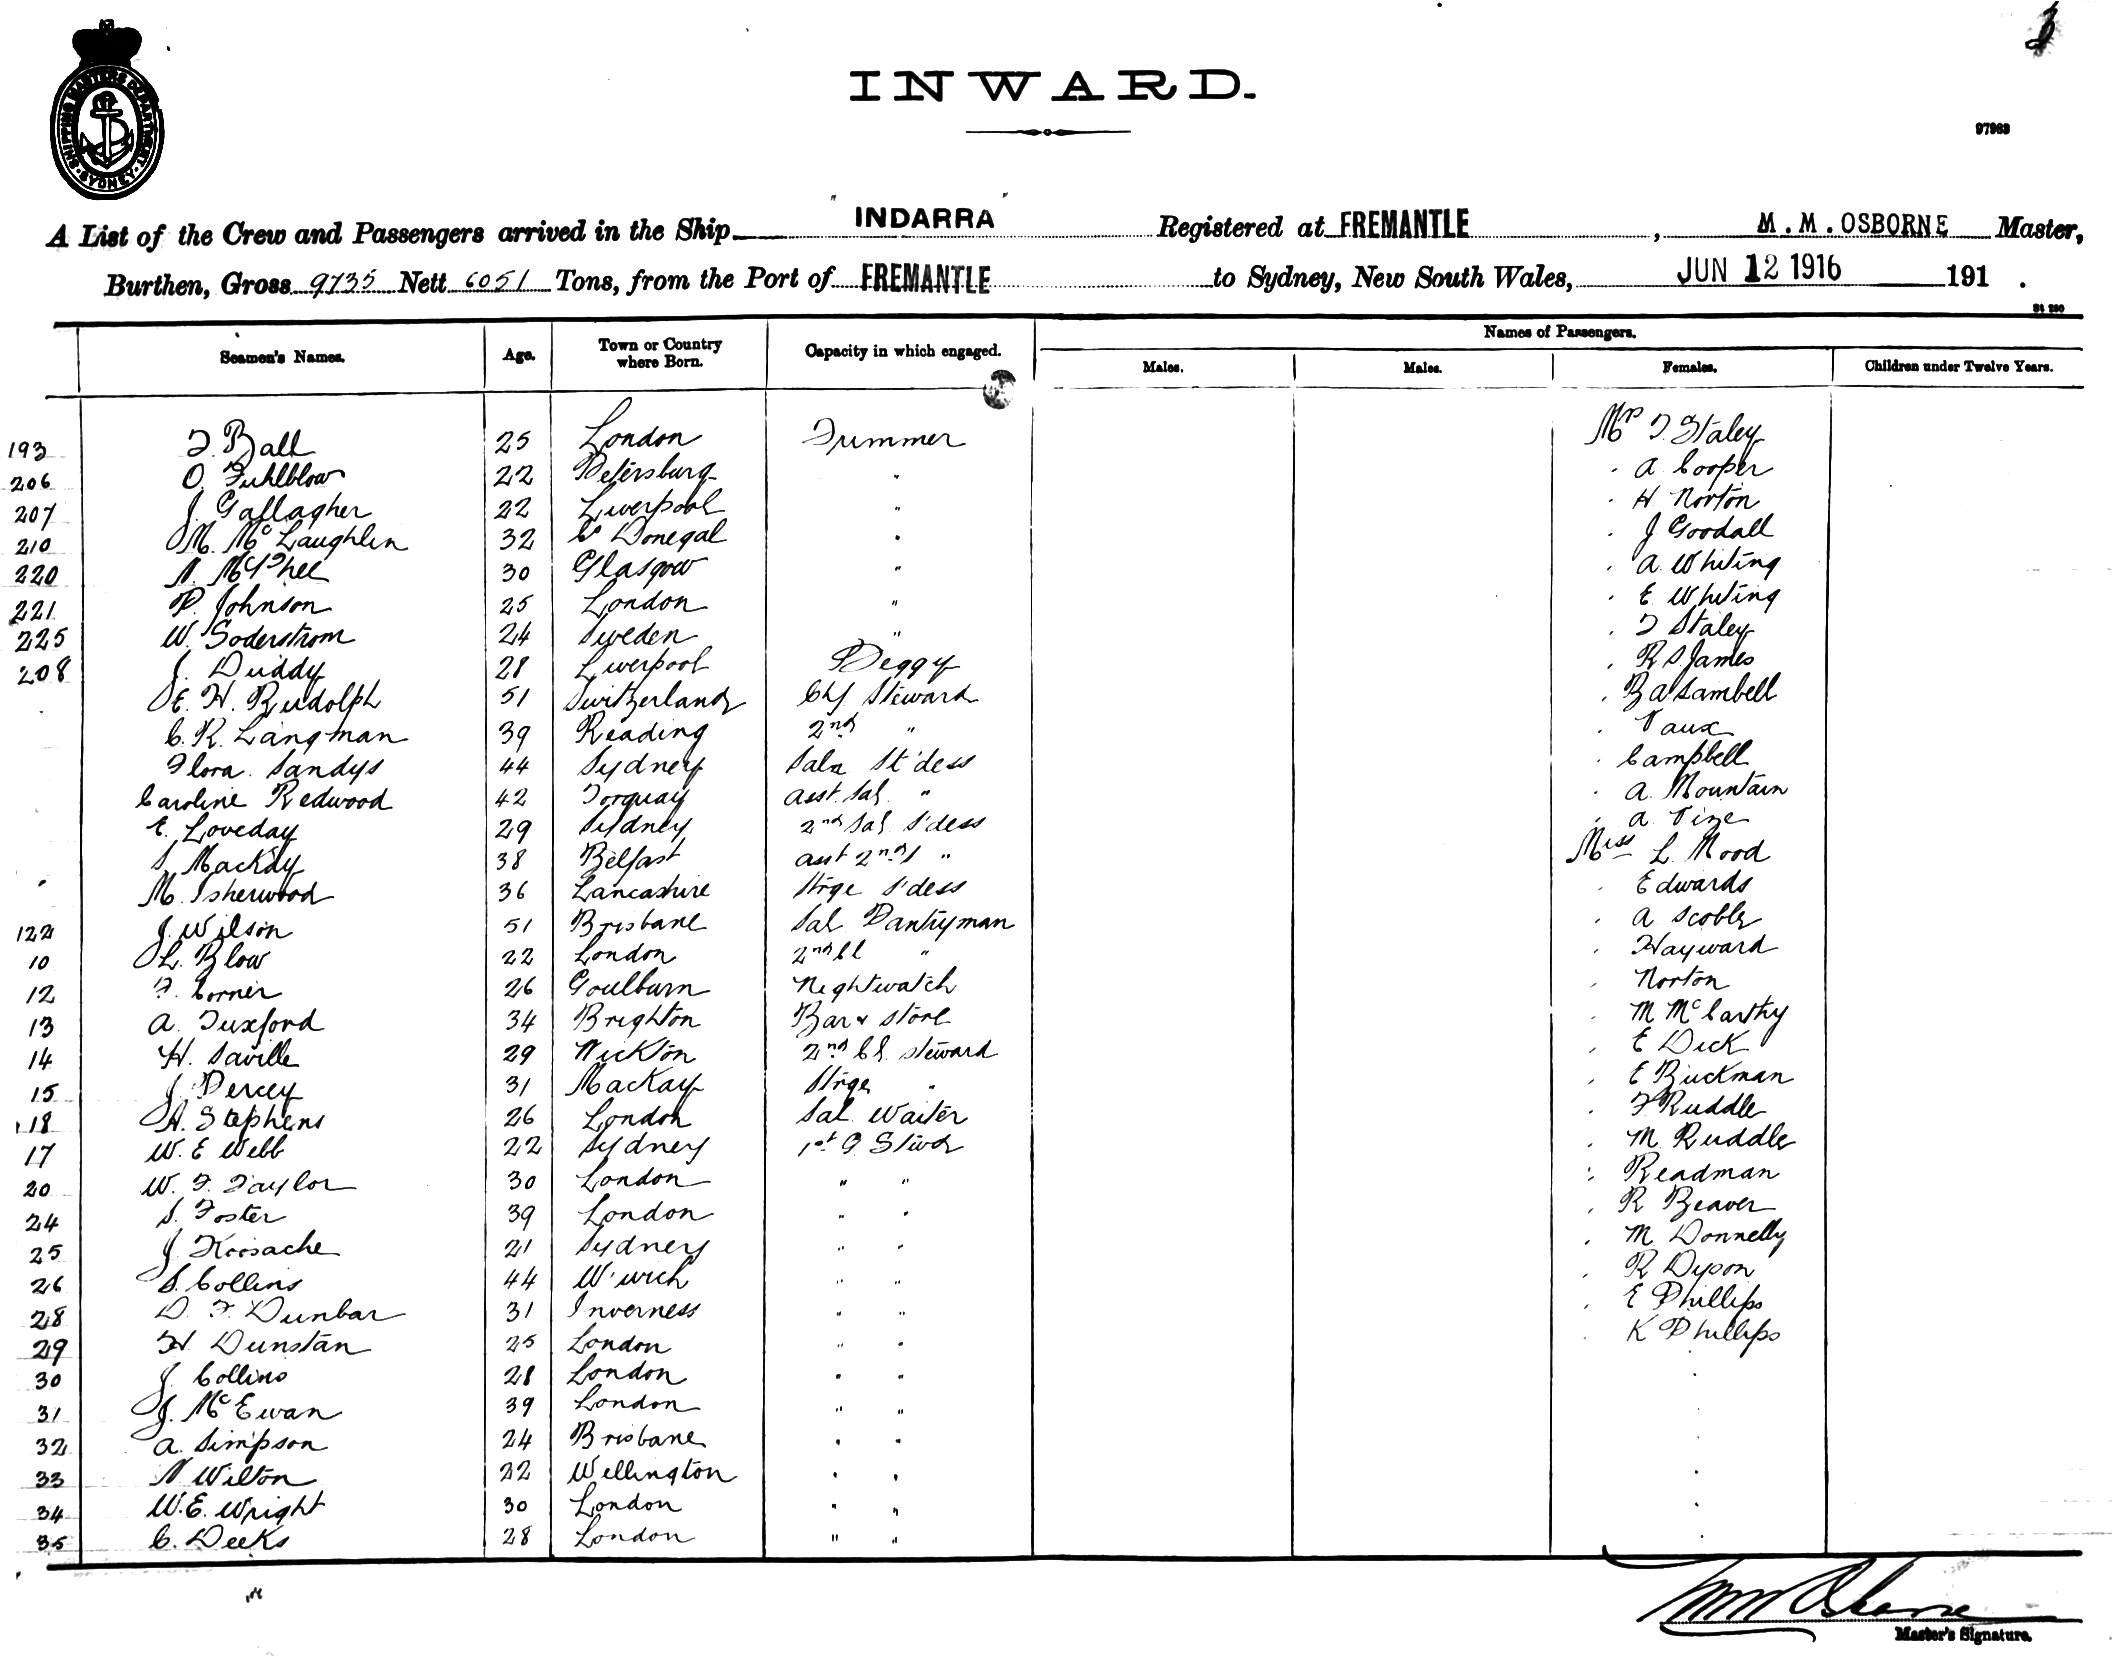 3
SHIPPING MASTERS DEPARTMENT · SYDNEY ·
INWARD.
97983
A List of the Crew and Passengers arrived in the Ship " INDARRA " Registered at FREMANTLE, M.M.OSBORNE Master,
Burthen, Gross 9735 Nett 6051 Tons, from the Port of FREMANTLE to Sydney, New South Wales, JUN 12 1916 191 .
Seamen's Names. Age. Town or Country where Born. Capacity in which engaged. Names of Passengers.
Males. Males. Females. Children under Twelve Years.
193 F. Ball 25 London Trimmer Mrs F. Staley
206 O. Fuhlblow 22 Petersburg " " A Cooper
207 J. Gallagher 22 Liverpool " " H Norton
210 M. McLaughlin 32 Co Donegal " " J Goodall
220 N. McPhee 30 Glasgow " " A Whiting
221 P. Johnson 25 London " " E Whiting
225 W. Soderstrom 24 Sweden " " F Staley
208 J. Duddy 28 Liverpool Peggy " R S James
E. H. Rudolph 51 Switzerland Chf Steward " B A Lambell
C. R. Langman 39 Reading 2nd " " Vaux
Flora Sandys 44 Sydney Saln St'dess " Campbell
Caroline Redwood 42 Torquay Asst. Sal. " " A Mountain
E. Loveday 29 Sydney 2nd Sal S'dess " A Tize
S. Mackay 38 Belfast Asst 2nd S " Miss L. Mood
M. Isherwood 36 Lancashire Strge S'dess " Edwards
122 J. Wilson 51 Brisbane Sal Pantryman " A Scobly
10 L. Blow 22 London 2nd Cl " " Hayward
12 F. Corner 26 Goulburn Nightwatch " Norton
13 A. Tuxford 34 Brighton Bar & Store " M McCarthy
14 H. Saville 29 Nickton 2nd Cl. Steward " E Dick
15 J. Percey 31 Mackay Strge " " E Buckman
18 A. Stephens 26 London Sal Waiter " F Ruddle
17 W. E Webb 22 Sydney 1st G Stwd " M Ruddle
20 W. F. Taylor 30 London " " " Readman
24 S. Foster 39 London " " " R Beaver
25 J. Koosache 21 Sydney " " " M Donnelly
26 S. Collins 44 W'wich " " " R Dyson
28 D. F. Dunbar 31 Inverness " " " E Phillips
29 H. Dunstan 25 London " " " K Phillips
30 J. Collins 28 London " "
31 J. McEwan 39 London " "
32 A. Simpson 24 Brisbane " "
33 N Wilton 22 Wellington " "
34 W. E. Wright 30 London " "
35 C. Deeks 28 London " "
MM Osborne
Master's Signature.